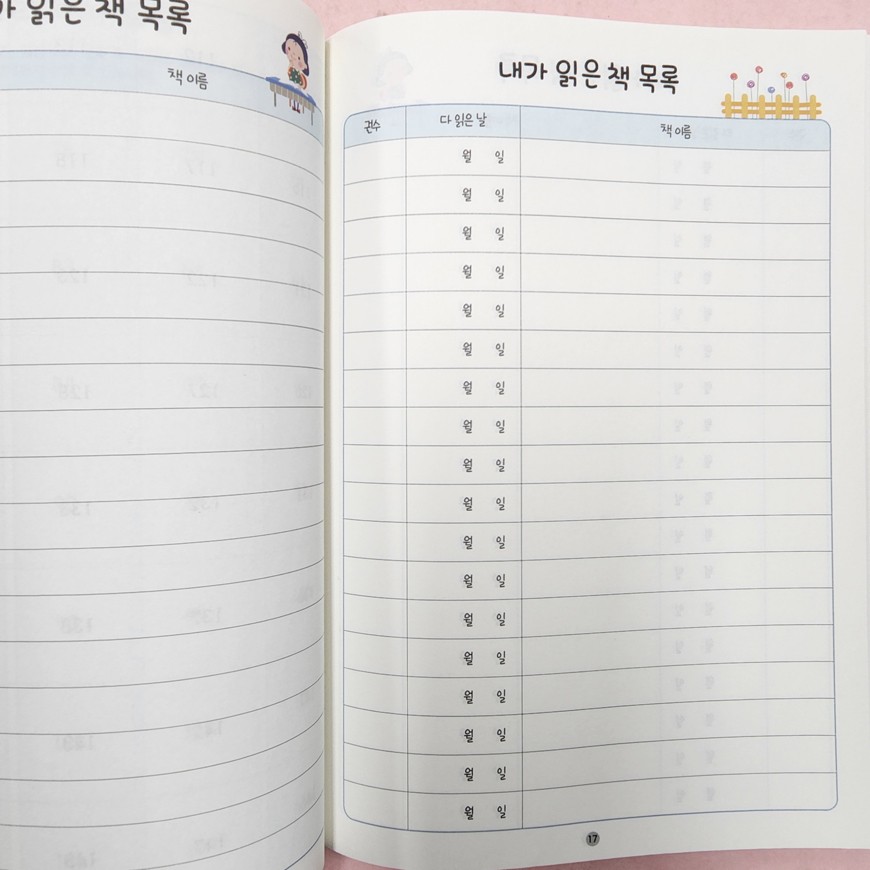 가 읽은 책 목록
책 이름
내가 읽은 책 목록
권수 다 읽은 날 책 이름
월 일
월 일
월 일
월 일
월 일
월 일
월 일
월 일
월 일
월 일
월 일
월 일
월 일
월 일
월 일
월 일
월 일
월 일
17